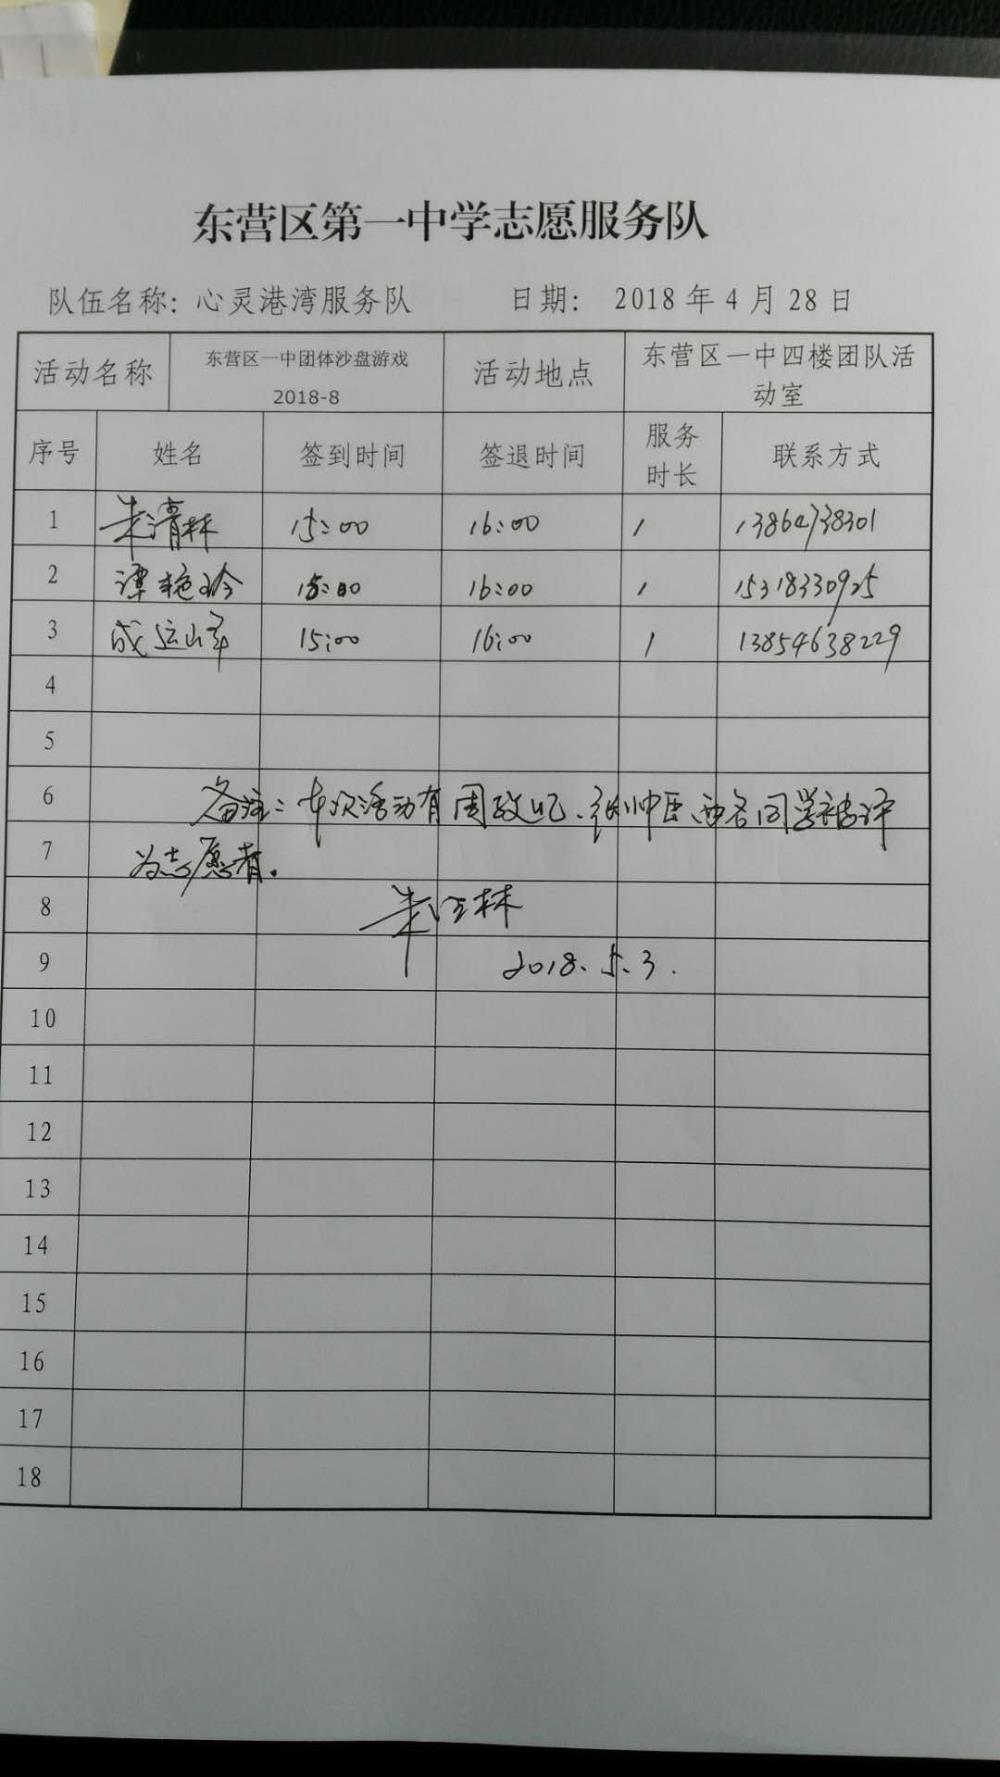 东营区第一中学志愿服务队
队伍名称：心灵港湾服务队 日期： 2018 年 4 月 28 日
活动名称 东营区一中团体沙盘游戏 2018-8 活动地点 东营区一中四楼团队活动室
序号 姓名 签到时间 签退时间 服务时长 联系方式
1 朱清林 15:00 16:00 1 13864738301
2 谭艳玲 15:00 16:00 1 15318330925
3 成运山 15:00 16:00 1 13854638229
4
5
6 备注：本次活动有周致 、 帅臣两名同学被评
7 为志愿者。
8 朱 林
9 2018.5.3.
10
11
12
13
14
15
16
17
18